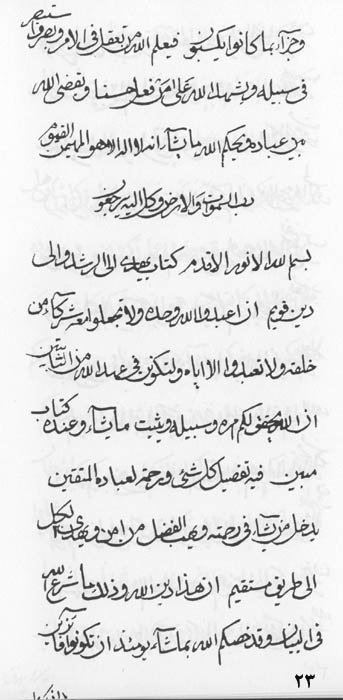 وجزآء بما كانوا يكسبون فيعلم الله من تعقل فى الامر و
فى سبيله ويشهد الله على من فعل احسنا ويقضى الله
بين عباده ويحكم الله ما يشآء انه لا اله الا هو المهيمن القيوم
رب السموات والارض وكل اليه يرجعون
بسم الله الانور الاقدم كتاب يهدى الى الرشد والى
دين قويم ان اعبدوا الله وحده ولا تجعلوا معه شركآء من
خلقه ولا تعبدوا الا اياه ولتكونن فى عبد الله من
ان الله لكم مره وسبيله ويثبت ما يشآء وعنده كتاب
مبين فيه تفصيل كل شئ ورحمة لعباده المتقين
يدخل من يشآء فى رحمته ويهب الفضل من امن ويهدى الكل
الى طريق مستقيم ان هذا دين الله وذلك ما شرع الله
فى البيان وقد خصكم الله بما شآء يومئذ ان تكونوا
٢٣